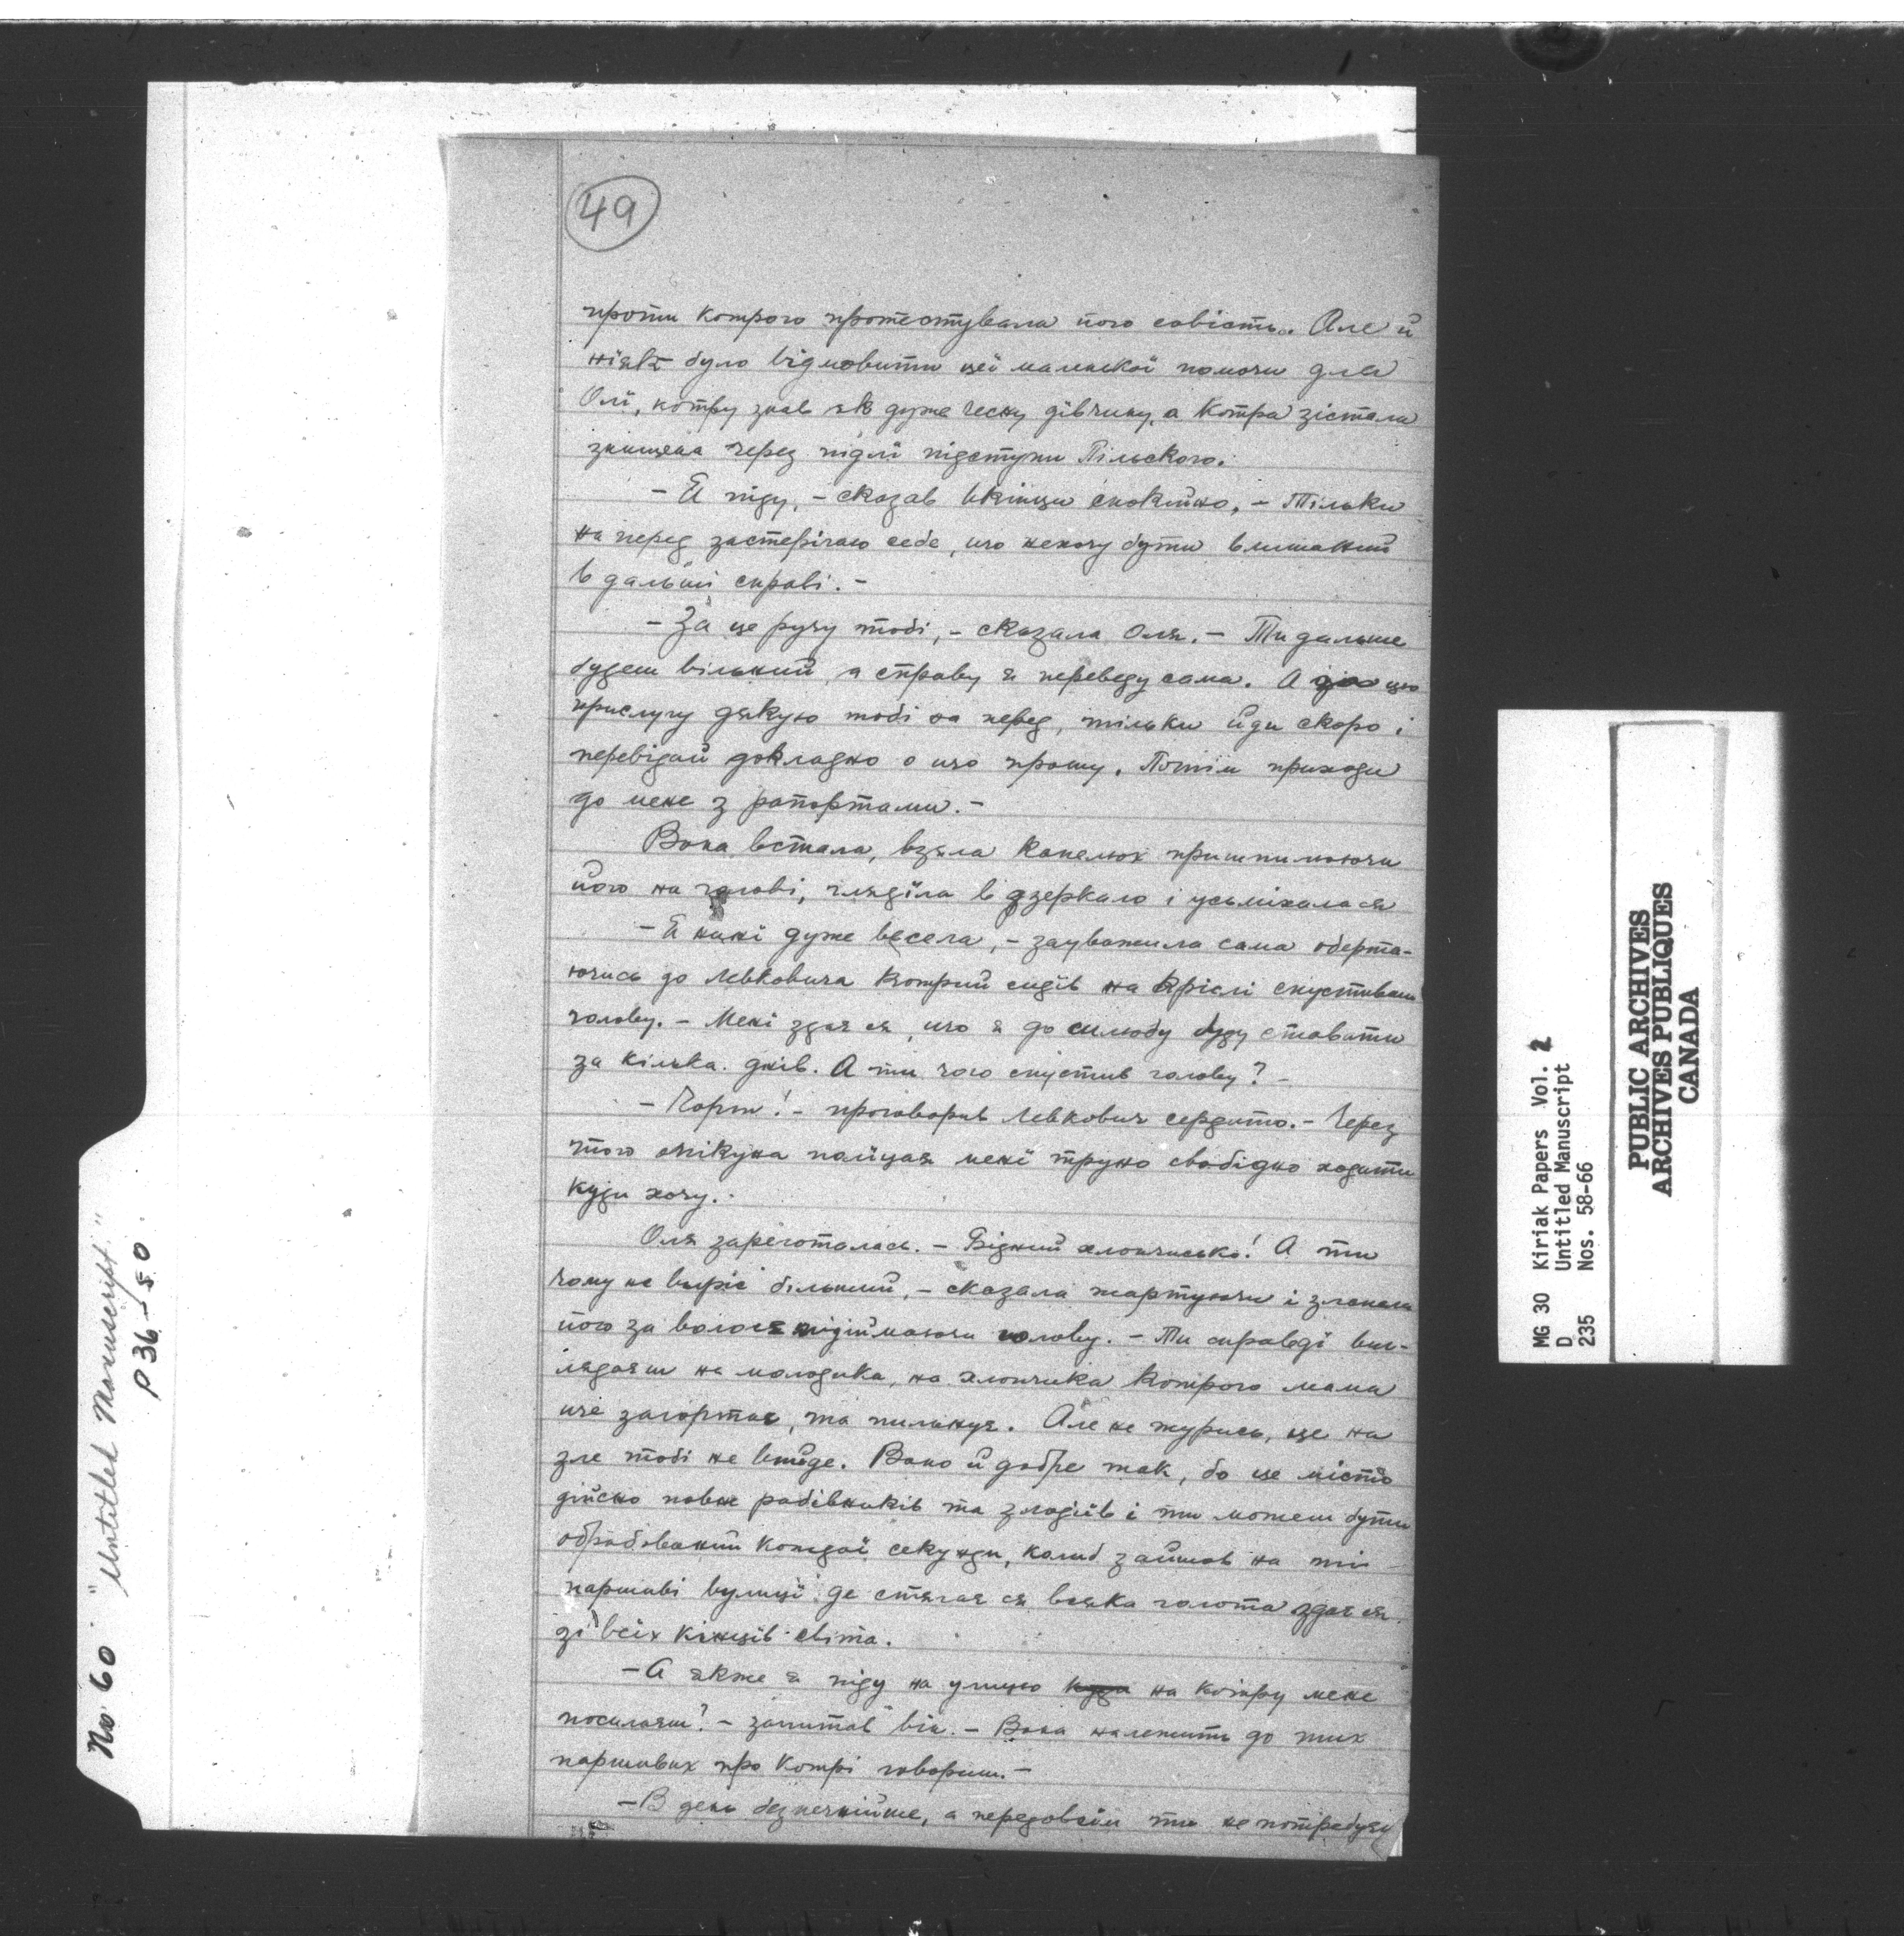 49
проти котрого протестувала його совість. Але й
ніяк було відмовити цеї маленької помочи для
Олї, котру знав як дуже чесну дівчину, а котра зістала
знищена через підлі підступи Пільского.
— Я піду, — сказав вкінци спокійно, — Тільки
на перед застерігаю себе, що нехочу бути вмішаний
в дальші справі. —
— За це ручу тобі, — сказала Оля. — Ти дальше
будеш вільний, а справу я переведу сама. А за цю
прислугу дякую тобі на перед, тільки йди скоро і
перевідай докладно о що прошу. Потім приходи
до мене з рапортами. —
Вона встала, взяла капелюх пришпилюючи
його на голові, гляділа в дзеркало і усьміхалася
— Я нині дуже весела, — зауважила сама оберта-
ючись до Левковича котрий сидів на кріслі спустивши
голову. — Мені здає ся, що я до шлюбу буду ставати
за кілька днів. А ти чого спустив голову? —
— Чорт! — проговорив Левкович сердито. — Через
того опікуна поліцая мені трудно свобідно ходити
куди хочу. —
Оля зареготалась. — Бідний хлопчисько! А ти
чому не виріс більший, — сказала жартуючи і злапала
його за волосє підіймаючи голову. — Ти справді виг-
лядаєш на молодика, на хлопчика котрого мама
ще загортає, та пильнує. Але не журись, це на
зле тобі не вийде. Воно й добре так, бо це місто
дійсно повне рабівників та злодіїв і ти можеш бути
обрабований кождої секунди, колиб зайшов на ті
паршиві вулиці де стягає ся всяка голота здає ся
зі всіх кінців світа.
— А якже я піду на улицю на котру мене
посилаєш? — запитав він. — Вона належить до тих
паршивих про котрі говориш. —
— В день безпечнійше, а передовсім ти не потребуєш
No 60 "Untitled Manuscript"
p 36-50
MG 30 Kiriak Papers Vol. 2
D Untitled Manuscript
235 Nos. 58-66
PUBLIC ARCHIVES
ARCHIVES PUBLIQUES
CANADA